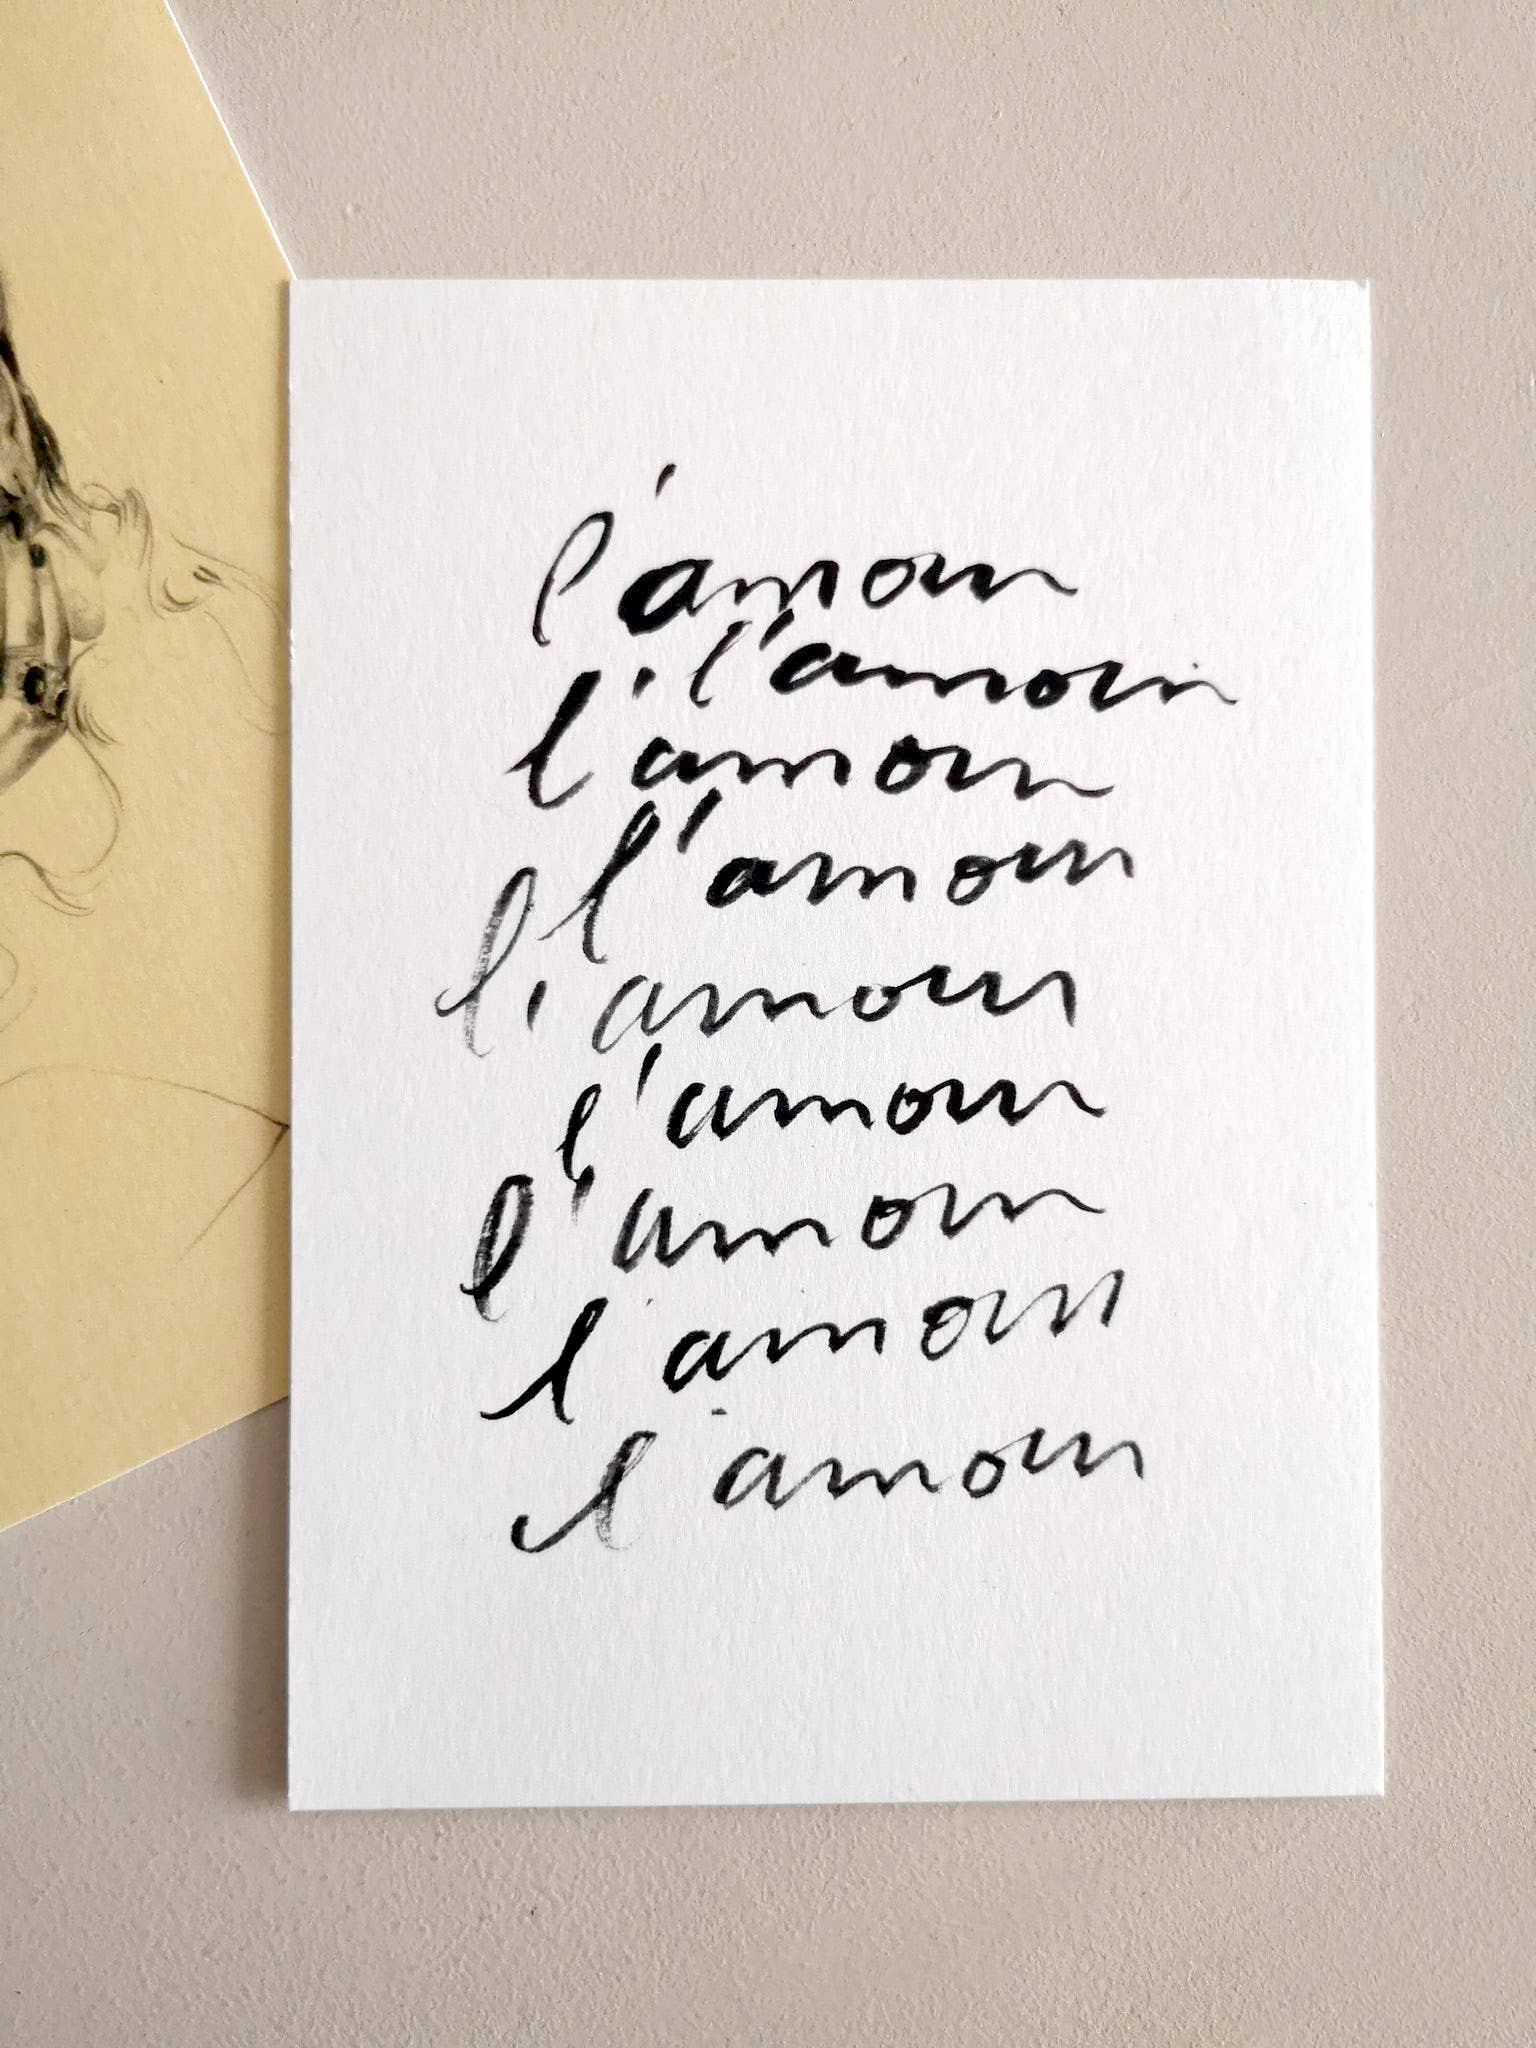 l'amour
l'amour
l'amour
l'amour
l'amour
l'amour
l'amour
l'amour
l'amour